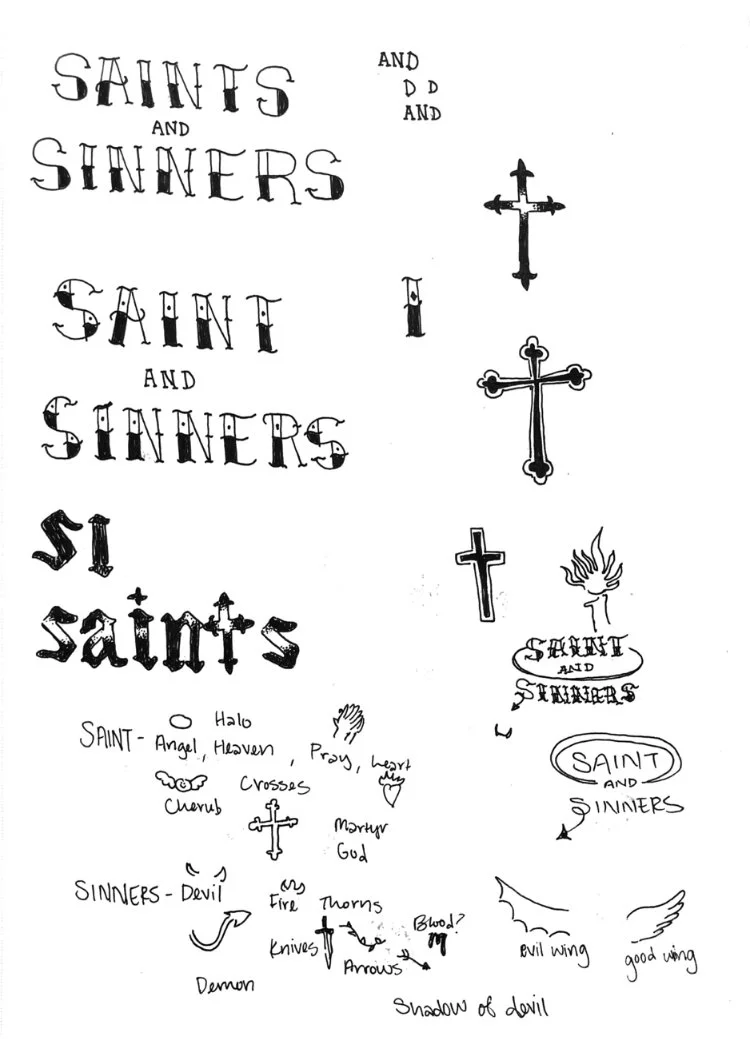 SAINTS
AND
SINNERS
AND
D D
AND
SAINT
AND
SINNERS
I
si
saints
SAINT
AND
SINNERS
SAINT
AND
SINNERS
SAINT - Halo
Angel, Heaven, Pray, heart
Cherub Crosses
Martyr
God
SINNERS - Devil
Fire Thorns
Knives Arrows Blood?
Demon
Shadow of devil
evil wing
good wing